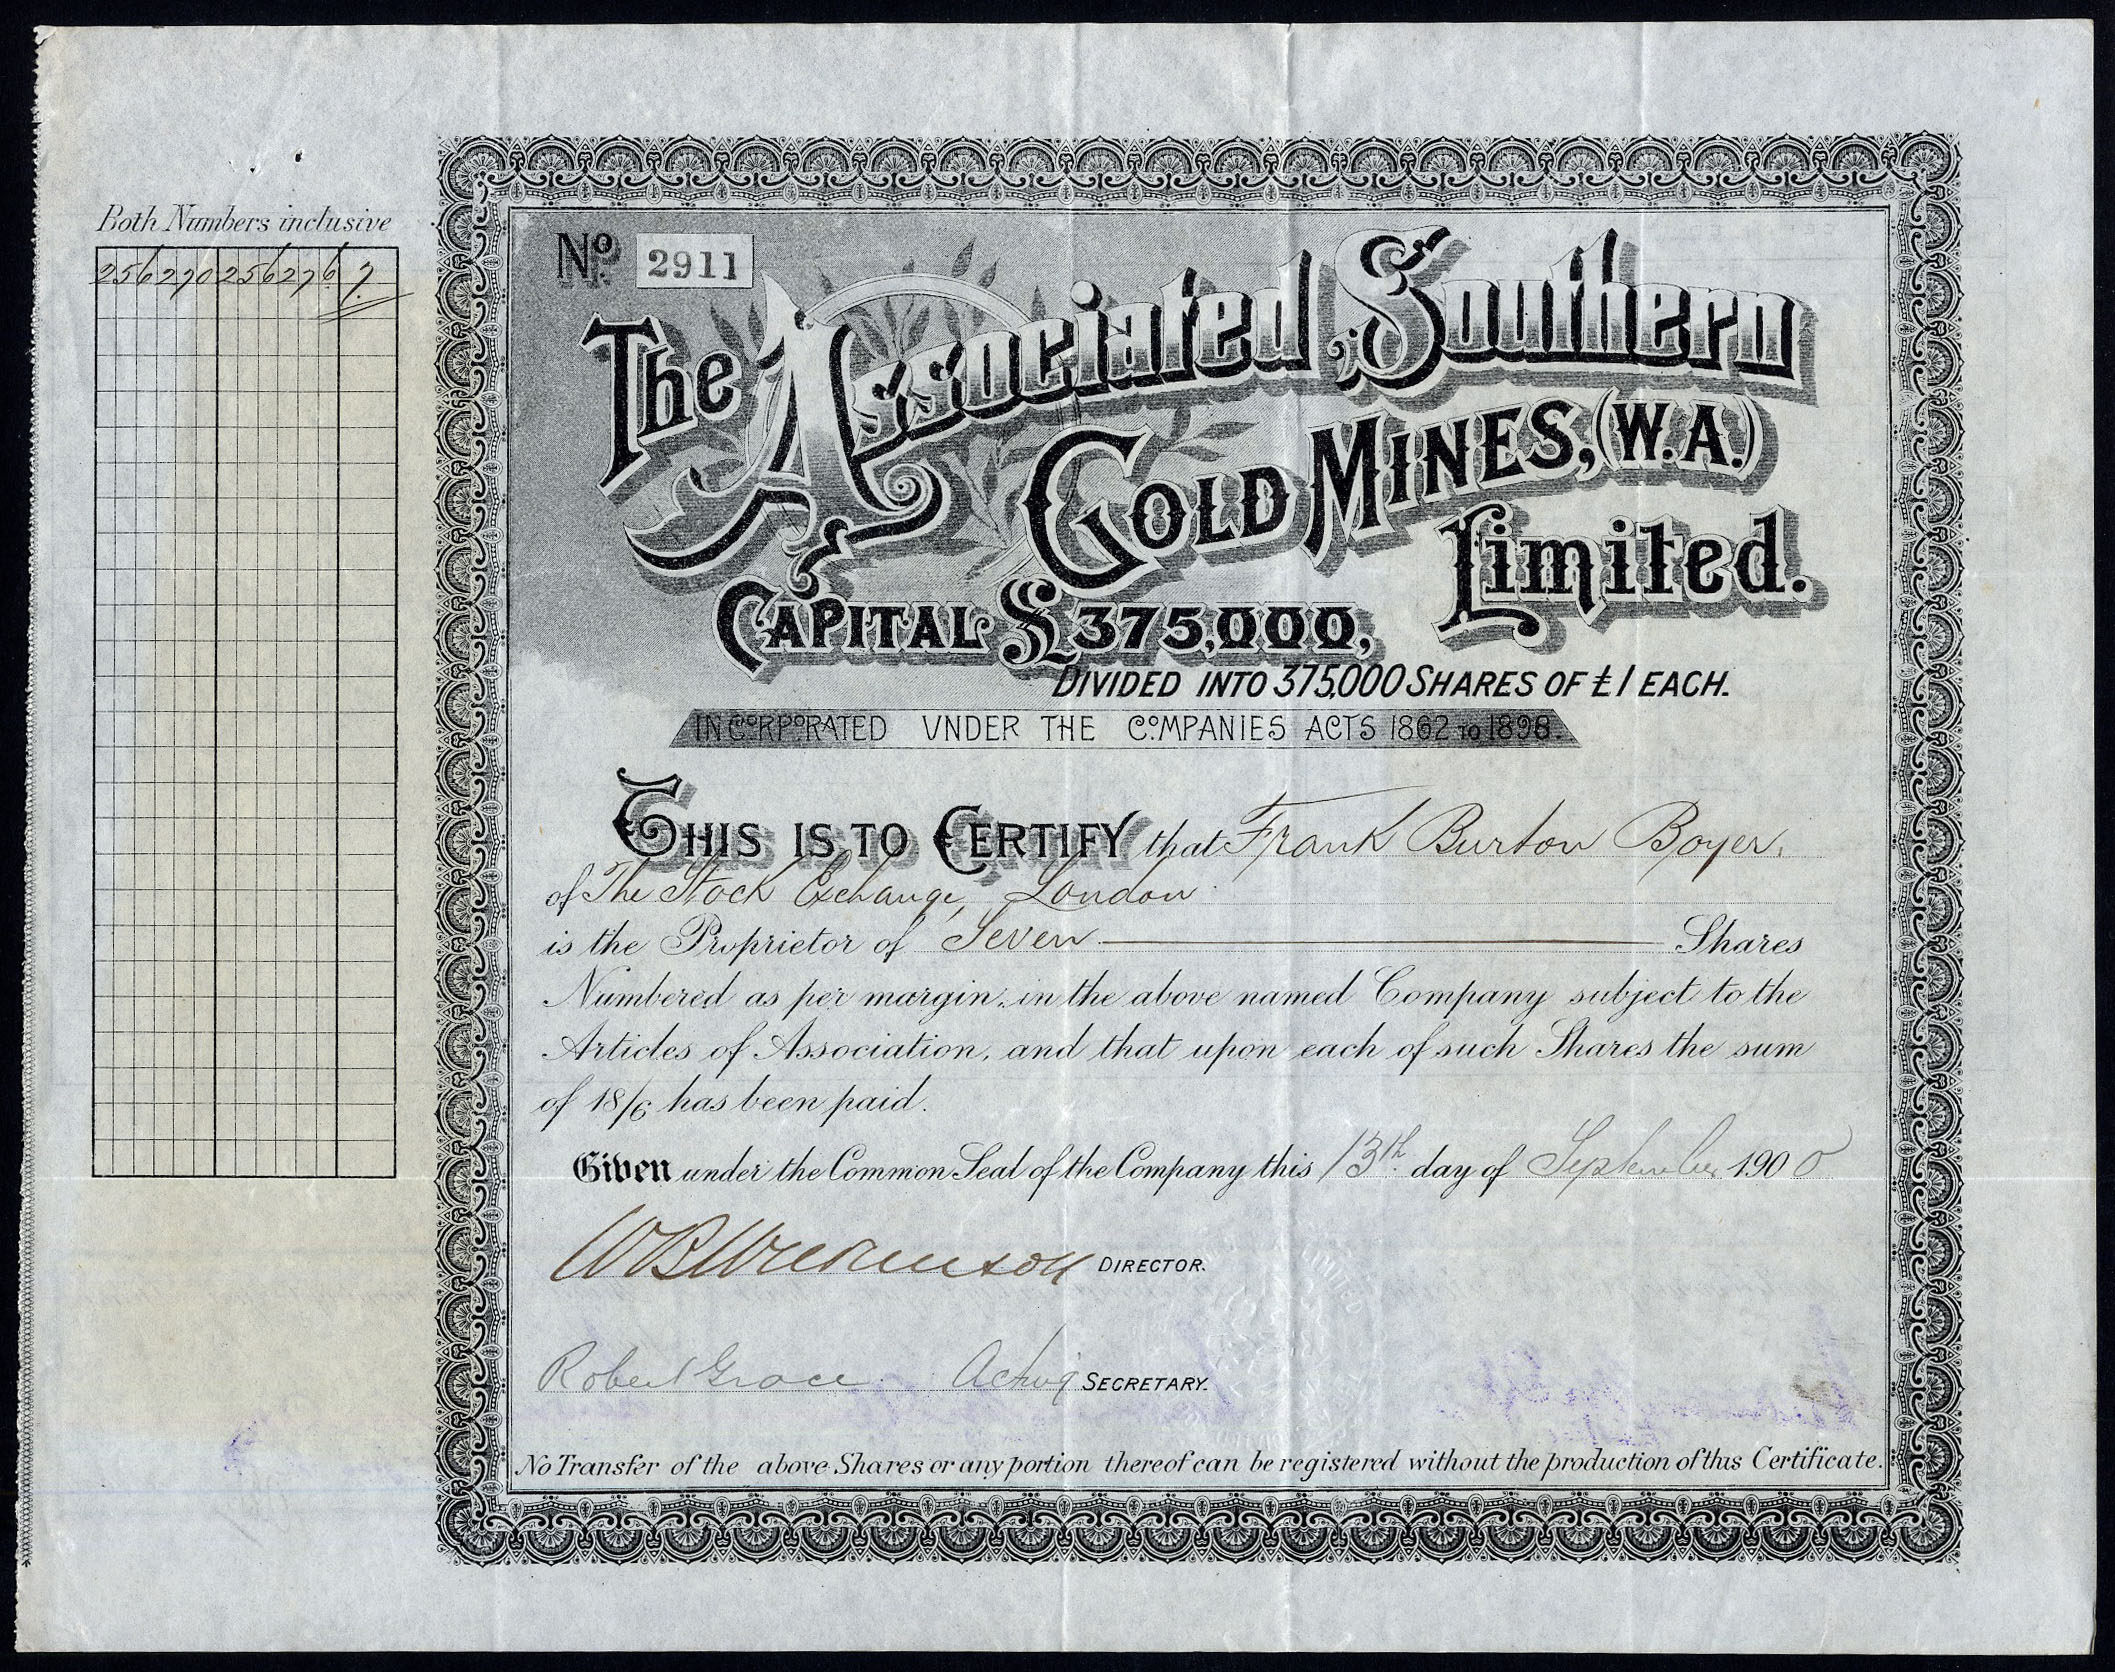 Both Numbers inclusive
256270 256276 7
No. 2911
The Associated Southern
Gold Mines, (W.A.)
Limited.
Capital £375,000,
Divided into 375,000 Shares of £1 each.
Incorporated under the Companies Acts 1862 to 1898.
This is to Certify that Frank Burton Boyer.
of The Stock Exchange, London
is the Proprietor of Seven Shares
Numbered as per margin, in the above named Company subject to the
Articles of Association, and that upon each of such Shares the sum
of 18/6 has been paid.
Given under the Common Seal of the Company this 13th day of September 1900
DIRECTOR.
Robert Grace Acting SECRETARY.
No Transfer of the above Shares or any portion thereof can be registered without the production of this Certificate.